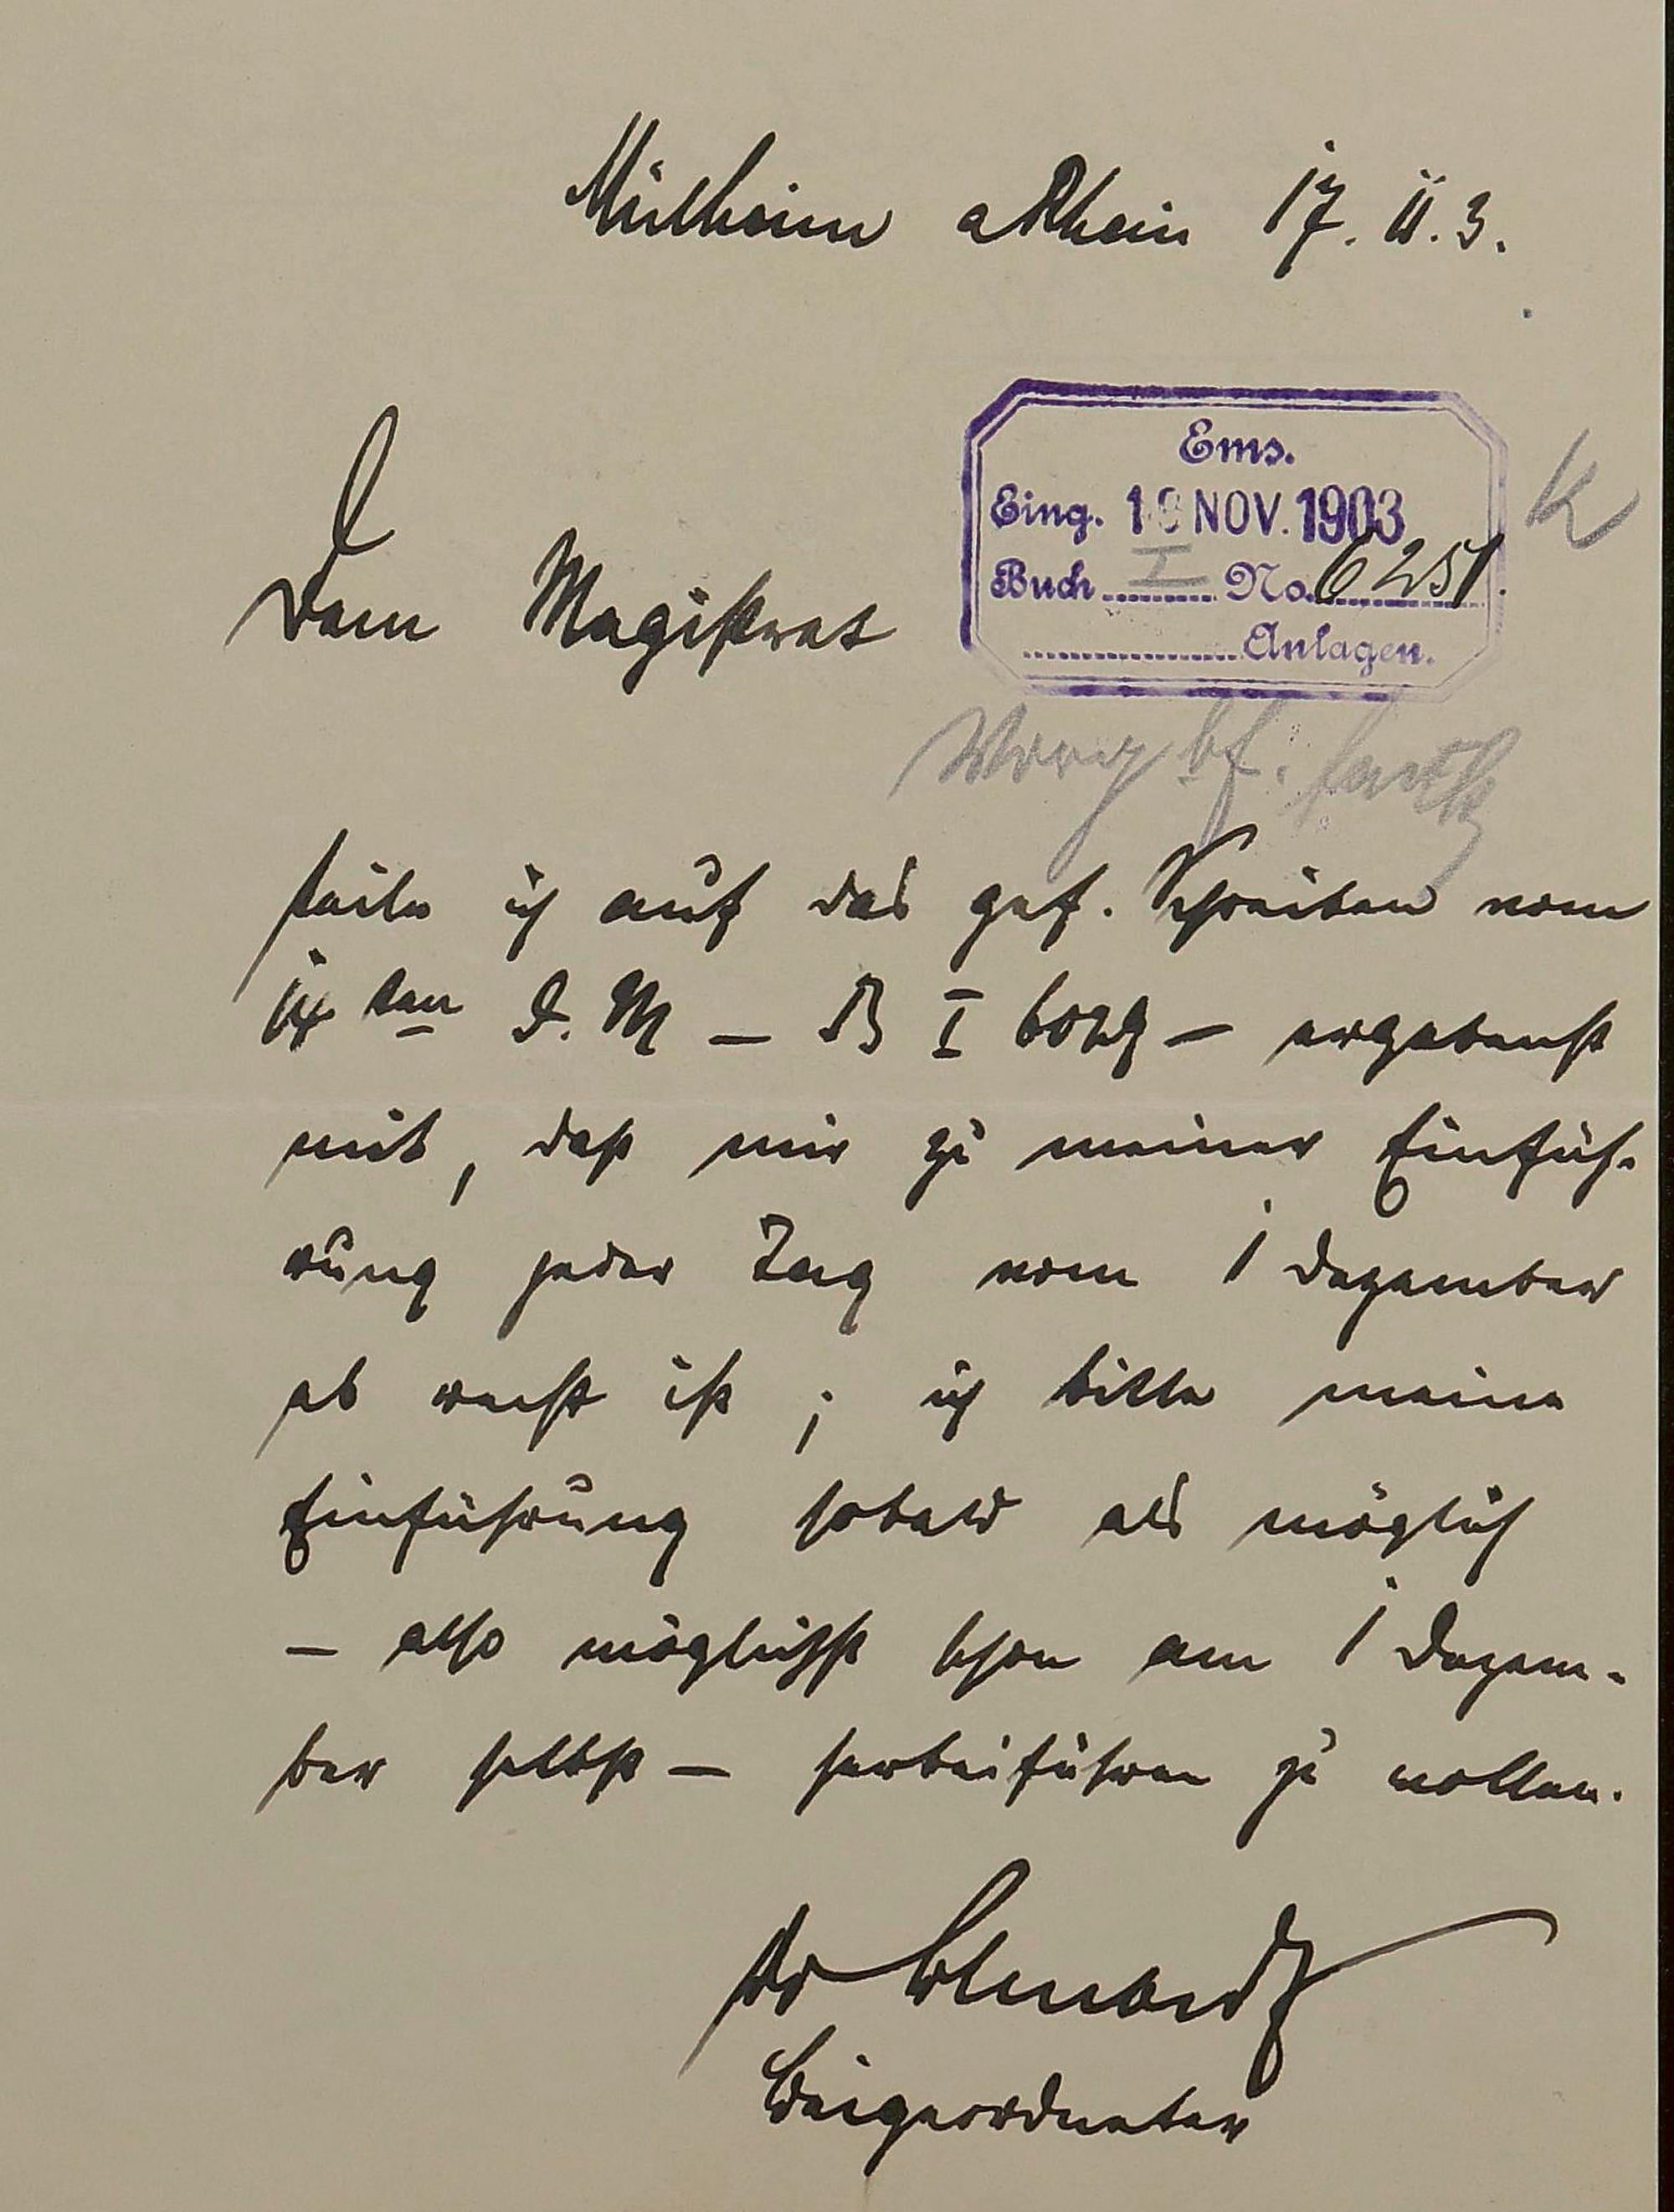 Mülheim a Rhein 17. 11. 3.
Ems.
Eing. 19 NOV. 1903
Buch I No. 6251.
Anlagen.
K
Dem Magistrat
teile ich auf das gef. Schreiben vom
14 ten d. M – B I 6029 – ergebenst
mit, daß mir zu meiner Einfüh-
rung jeder Tag vom 1 Dezember
ab recht ist; ich bitte meine
Einführung sobald als möglich
– also möglichst schon am 1 Dezem-
ber selbst – herbeiführen zu wollen.
Dr
Beigeordneter